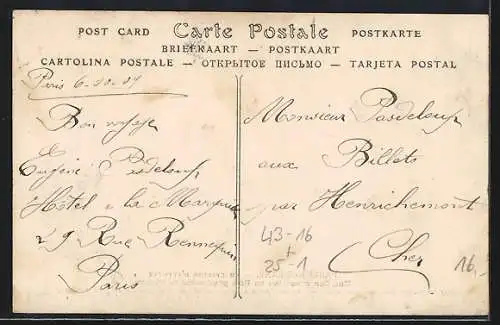 POST CARD Carte Postale POSTKARTE
BRIEFKAART — POSTKAART
CARTOLINA POSTALE — ОТКРЫТОЕ ПИСЬМО — TARJETA POSTAL
Paris 6-10-07
Bon voyage
Eugène Pasdeloup
Hôtel de la Marquise
29 Rue Rennequin
Paris
Monsieur Pasdeloup
aux Billets
par Henrichemont
Cher
43-16
25-1
16.